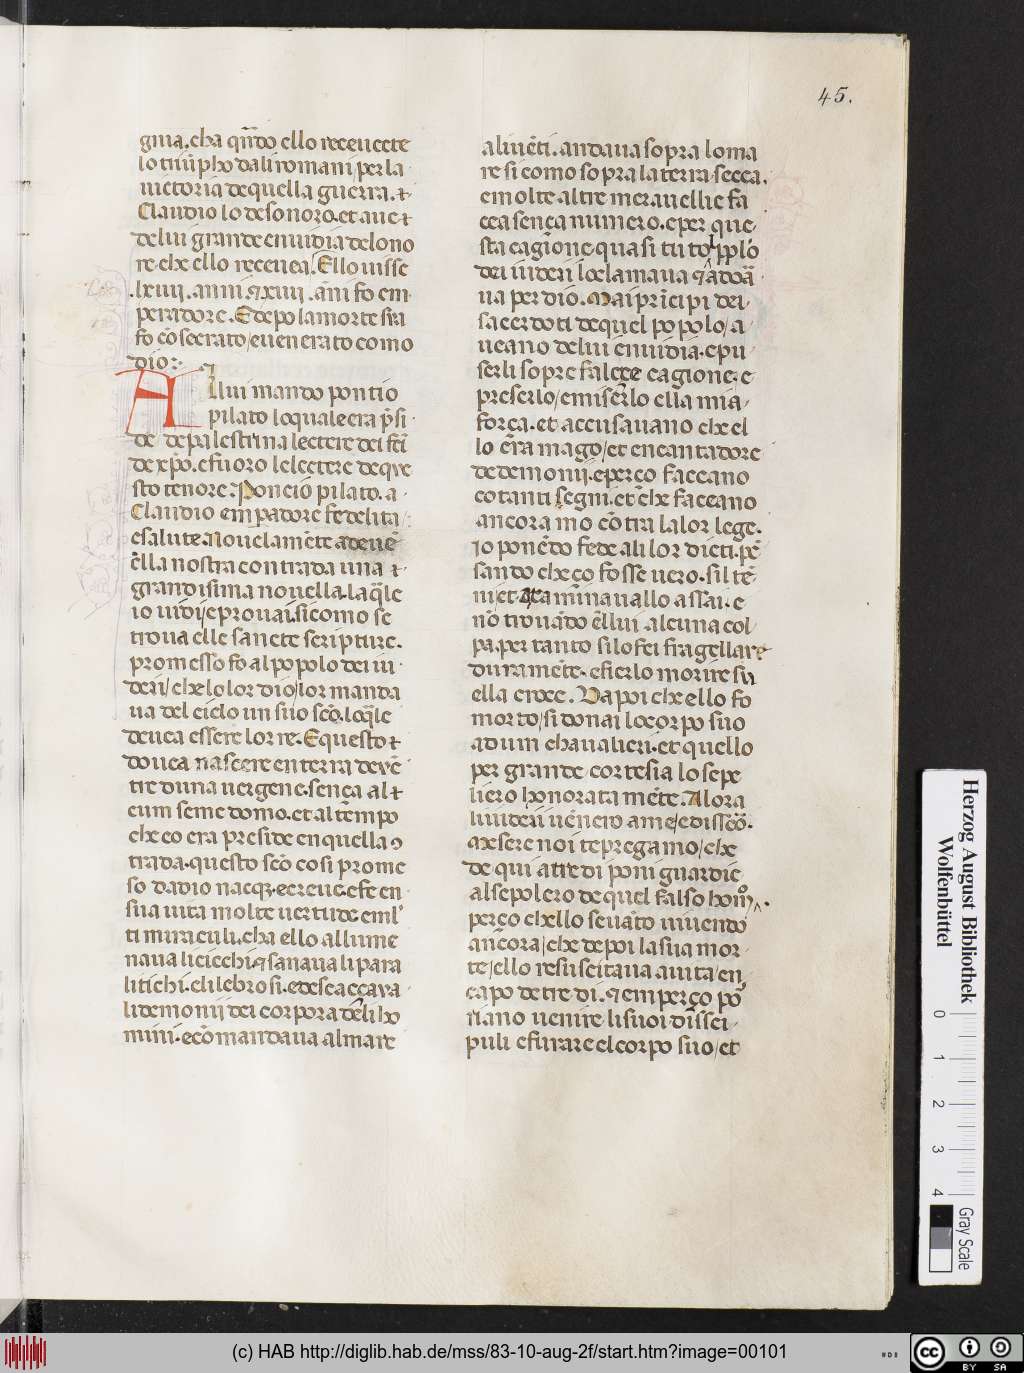 45.
gnia. cha qn̄do ello receuette
lo triũpho dali romani per la
uictoria de quella guerra. et
Claudio lo desonoro. et aue et
de lui grande enuidia delono
re che ello receuea. Ello uisse
.lxiiij. anni. ⁊ xiiij. ãni fo em
peradore. E depo la morte sua
fo cõsecrato/ e uenerato como
dio:
A llui mando pontio
pilato loquale era p̃si
de de palestrina lectere dei fcī
de xp̃o. e fuoro le lectere de que
sto tenore. Poncio pilato. a
Claudio emp̃adore fedelita
e salute. Nouelamẽte adeuẽ
ẽlla nostra contrada una et
grandisima nouella. la q̃le
io uidi/ e prouai. si como se
troua elle sancte scripture.
promesso fo al popolo dei iu
deri/ che lo lor dio/ lor manda
ua del cielo un suo scõ. lo q̃le
deuea essere lor re. E questo et
douea nascere en terra de uẽ
tre duna uergene. sença al et
cum seme domo. et al tẽmpo
che eo era preside en quella ꝯ
trada. questo scõ cosi prome
so da dio nacq;. e creue. e fe en
sua uita molte uertude e ml̃
ti miraculi. cha ello allume
naua li ciechi ⁊ sanaua li para
litichi. e li lebrosi. e descaccaua
li demonij dei corpora deli ho
mini. e cõmandaua al mare
ali uẽti. andaua sopra lo ma
re si como sopra la terra secca.
e molte altre merauellie fa
cea sença numero. e per que
sta cagione quasi tuto l pplo
dei iuderi lo clamaua ⁊ adoã
ua per dio. Mai prĩcipi dei
sacerdoti de quel popolo/ a
ueano de lui enuidia. e pu
serli sopre falcere cagione. e
preserlo/ e miserlo ella mia
força. et accusauano che el
lo era mago/ et encantadore
de demonij. e perço faceano
cotanti segni. et che faceano
ancora mo cõtra la lor lege.
Io ponẽdo fede ali lor dicti. pẽ
sando che ço fosse uero. sil tẽ
ni/ et examinauallo assai. e
nõ trouãdo ẽllui alcuna col
pa. per tanto si lo fei fragellare
duramẽte. e fierlo morire su
ella croce. Da poi che ello fo
morto/ si donai lo corpo suo
ad un chaualieri. et quello
per grande cortesia lo sepe
liero honorata mẽte. Alora
li iuderi uẽnero a me/ e dissero.
Mesere noi te pregamo/ che
de qui a tre di poni guardie
al sepolcro de quel falso homo.
perço chello se uãto uiuendo
ancora/ che depoi la sua mor
te/ ello resuscitaua a uita/ en
capo de tre di. ⁊ emperço po
riano uenire li suoi disci
puli e furare el corpo suo/ et
Herzog August Bibliothek
Wolfenbüttel
0 1 2 3 4
Gray Scale
(c) HAB http://diglib.hab.de/mss/83-10-aug-2f/start.htm?image=00101
CC BY SA